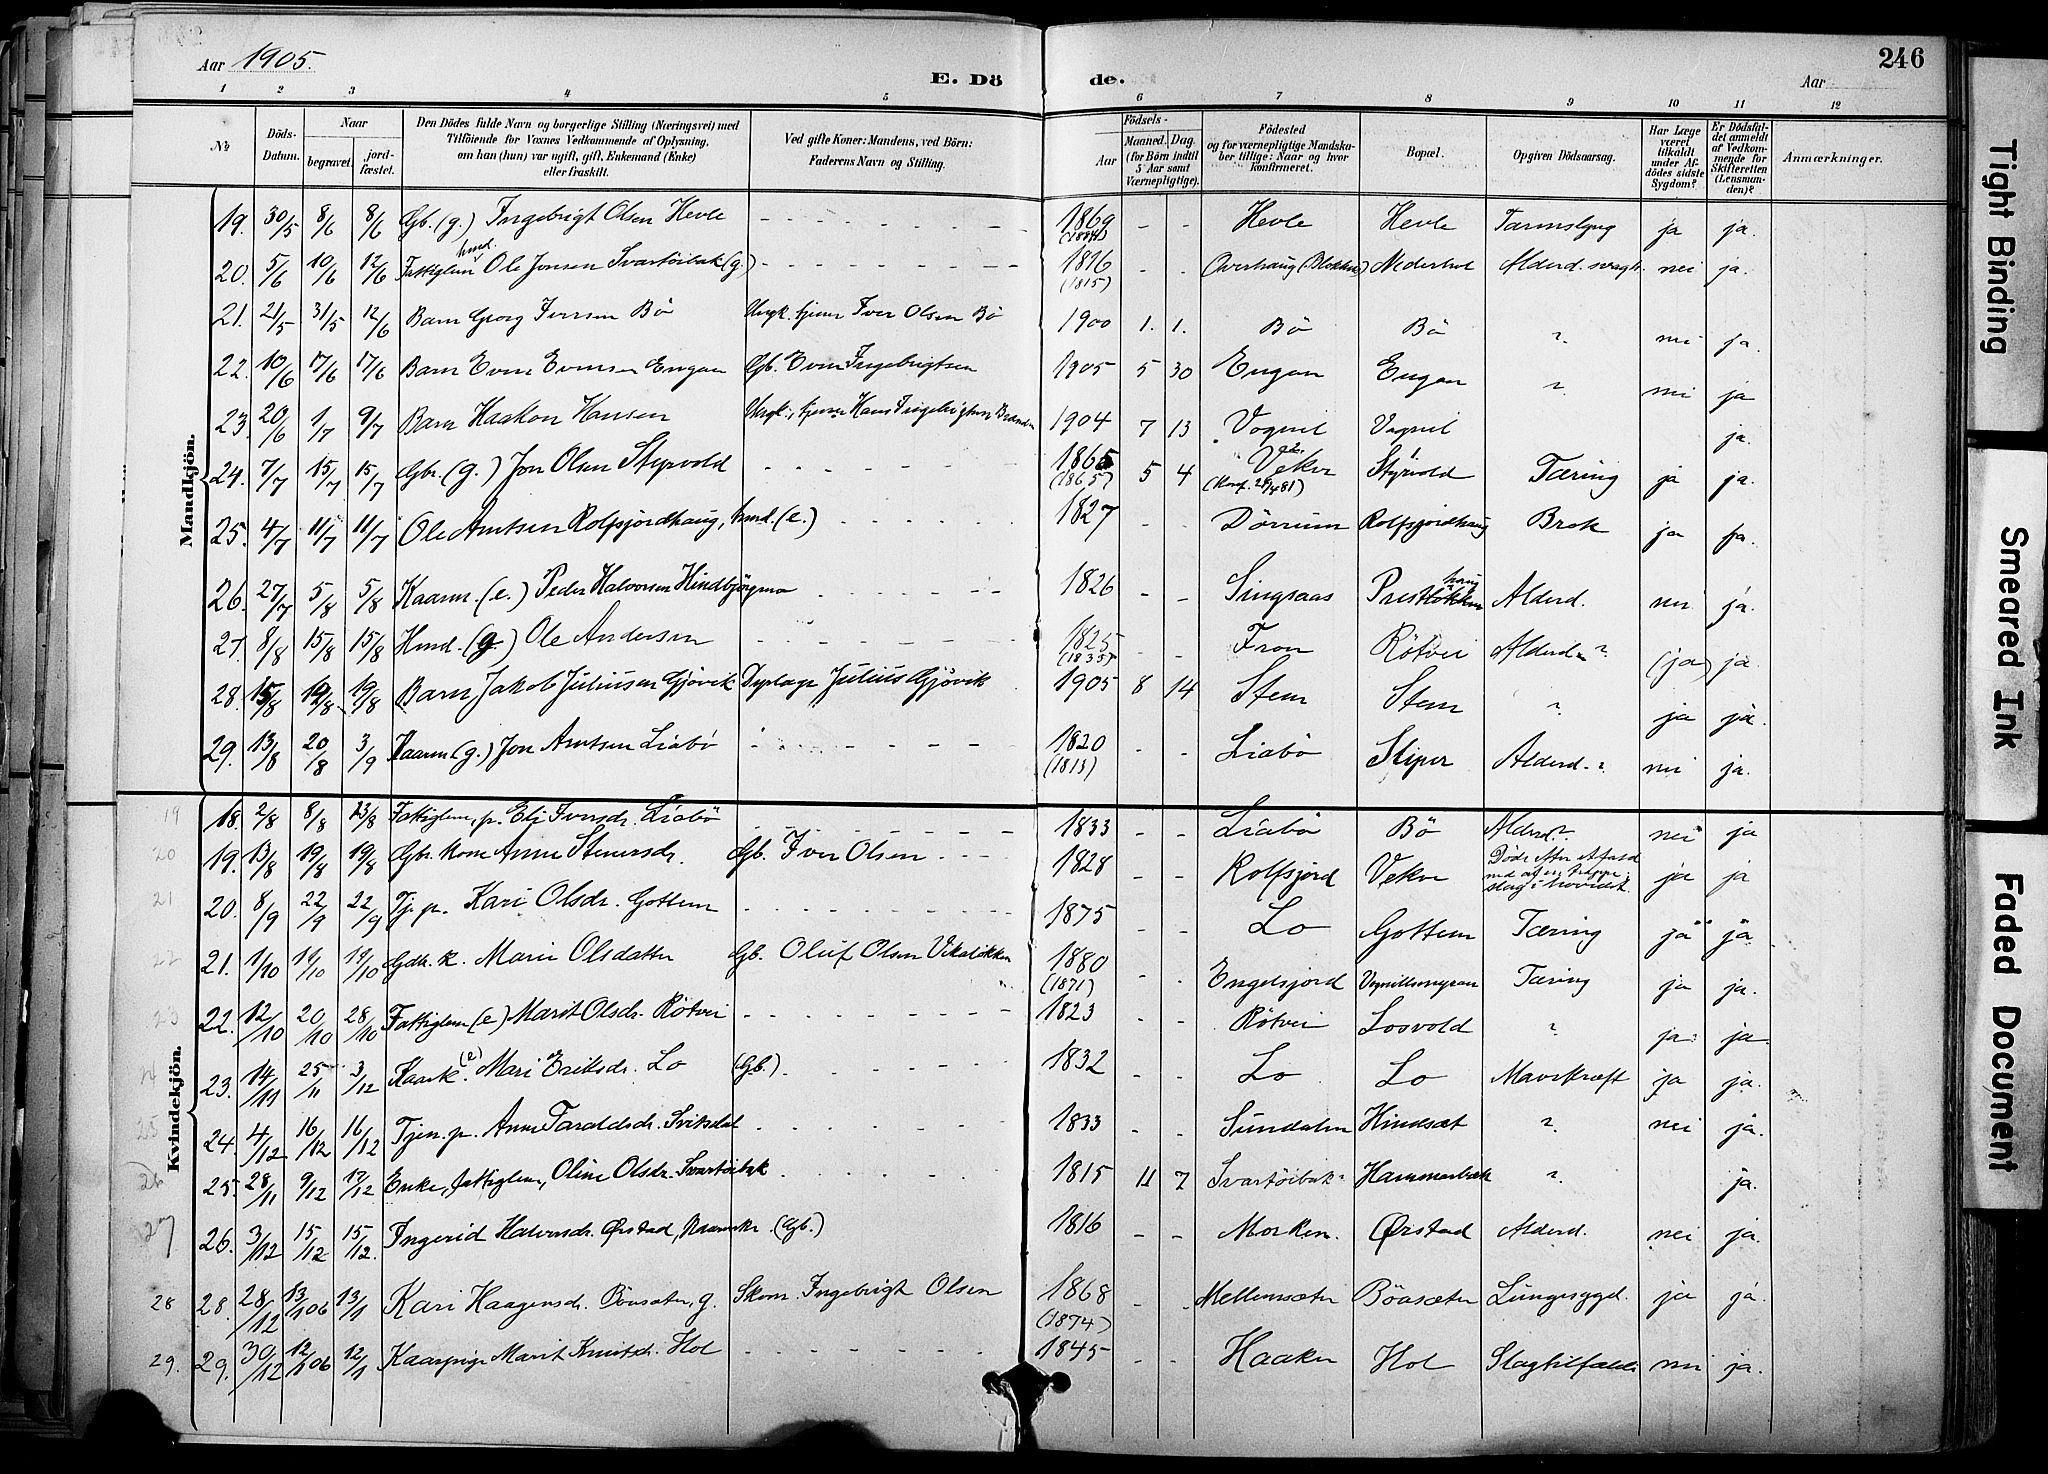 Aar 1905.
E. Dö de.
Aar
246
1 2 3 4 5 6 7 8 9 10 11 12
№
Döds-Datum.
Naar
begravet. jord-fæstet.
Den Dödes fulde Navn og borgerlige Stilling (Næringsvei) med Tilföiende for Voxnes Vedkommende af Oplysning, om han (hun) var ugift, gift, Enkemand (Enke) eller fraskilt.
Ved gifte Koner: Mandens, ved Börn: Faderens Navn og Stilling.
Födsels-
Aar Maaned. Dag. (for Börn indtil 5 Aar samt Værnepligtige).
Födested og for værnepligtige Mandska-ber tillige: Naar og hvor konfirmeret.
Bopæl.
Opgiven Dödsaarsag.
Har Læge været tilkaldt under Af-dödes sidste Sygdom?
Er Dödsfal-det anmeldt af Vedkom-mende for Skifteretten (Lensman-den)?
Anmærkninger.
Mandkjön.
19. 30/5 8/6 8/6 Gb. (g.) Ingebrigt Olsen Hevle - - - 1869 - - Hevle Hevle ja ja.
20. 5/6 10/6 12/6 Fattiglem Ole Jonsen Svartöibak (g.) - - - 1816 (1815) - - Nederhol Alderd. svagh. nei ja.
21. 21/5 31/5 12/6 Barn Georg Iversen Bö Iver Olsen Bö 1900 1. 1. Bö Bö ? nei ja.
22. 10/6 17/6 17/6 Barn Even Evensen Engan Gb. Even Ingebrigtsen 1905 5 30 Engan Engan ? nei ja
23. 20/6 1/7 9/7 Barn Haakon Hansen Hans Ingebrigtsen 1904 7 13 Vognil Vognil ja.
24. 7/7 15/7 15/7 Gbr. (g.) Jon Olsen Styrvold - - - 1865 (1865) 5 4 Vekve Styrvold Tæring ja ja.
25. 4/7 11/7 11/7 Ole Arntsen Rolfsjordhaug, hmd. (e.) - - - 1827 - - Dörrum Rolfsjordhaug Brok ja ja.
26. 27/7 5/8 5/8 Kaarm. (e.) Peder Halvorsen Hindbjörgmo - - - 1826 - - Singsaas Alderd. nei ja.
27. 8/8 15/8 15/8 Hmd. (g.) Ole Andersen - - - 1825 (1835) - - Fron Rötvei Alderd. ? (ja) ja.
28. 15/8 19/8 19/8 Barn Jakob Juliusen Gjövik Dyrlæge Julius Gjövik 1905 8 14 Stem Stem ? ja ja.
29. 13/8 20/8 3/9 Kaarm (g.) Jon Arntsen Liabö - - - 1820 (1813) - - Liabö Sliper Alderd. ? nei ja.
Kvindekjön.
19 18. 2/8 8/8 23/8 Fattiglem, p. Eli Iversdr. Liabö - - - 1833 - - Liabö Bö Alderd. ? nei ja
20 19. 13/8 19/8 19/8 Gbr. kone Anne Steversdr. Gb. Iver Olsen - - 1828 - - Rolfsjord Vekve slag i hovedet. ja ja
21 20. 8/9 22/9 22/9 Tj. p. Kari Olsdr. Gottem - - - 1875 - - Lo Gottem Tæring ja ja.
22 21. 1/10 19/10 19/10 Gdb. k. Marie Olsdatter Gb. Oluf Olsen Vikaløkken 1880 (1871) - - Engelsjord Tæring ja ja.
23 22. 12/10 20/10 28/10 Fattiglem (e) Marit Olsdr. Rötvei - - - 1823 - - Rötvei Losvold ? ja ja.
23. 14/11 25/11 3/12 Kaark. (e) Mari Eriksdr. Lo (Gb.) - - - 1832 - - Lo Lo Mavekræft ja ja.
25 24. 4/12 16/12 16/12 Tjen. p. Anne Taraldsdr. Svisdal - - - 1833 - - Sundalen Hindsæt ? nei ja.
26 25. 28/11 9/12 17/12 Enke, fattiglem, Oline Olsdr. Svartöibak - - - 1815 11 7 Svartöibak Hammerbæk ? ja.
27 26. 3/12 15/12 15/12. Ingerid Halvorsdr. Ørstad, Kaarenke. (Gb.) 1816 - - Morken. Ørstad Alderd. nei ja.
28 28. 28/12 13/1 06 13/1 Kari Haagensdr. Böasæter, g. Skom. Ingebrigt Olsen 1868 (1874) - - Mellemsæter Böasæter Lungesygd. ja ja.
29. 29. 30/12 12/1 06 12/1 Kaarpige Marit Knutsdr. Hol - - - 1845 - - Haaker Hol Slagtilfælde nei ja.
Tight Binding
Smeared Ink
Faded Document